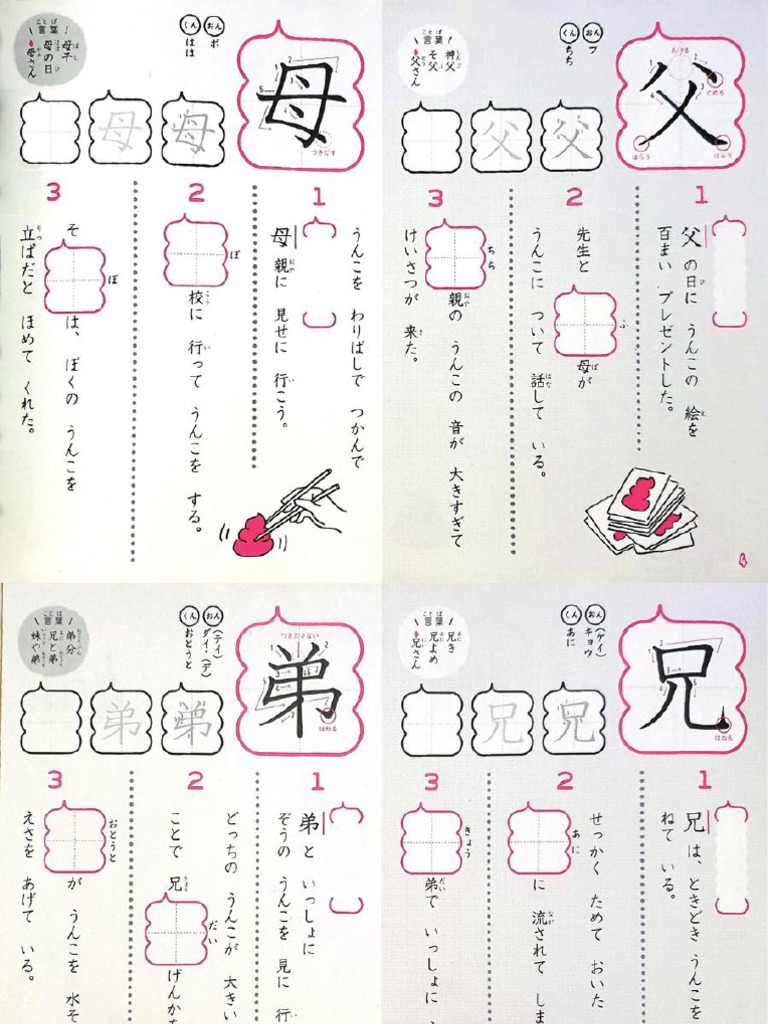 父
あける
とめる
はらう
はらう
おん
フ
くん
ちち
言葉!
ことば
神父
しんぷ
そ父
ふ
父さん
とう
父
父
1
父の日に うんこの 絵を
ひ
え
百まい プレゼントした。
2
先生と
ふ
母が
ぼ
うんこに ついて 話して いる。
はな
3
ちち
親の うんこの 音が 大きすぎて
おや
けいさつが 来た。
き
4
母
つきだす
おん
ボ
くん
はは
言葉!
ことば
母子
ぼし
母の日
はは
ひ
母さん
かあ
母
母
1
うんこを わりばしで つかんで
母親に 見せに 行こう。
おや
い
2
ぼ
校に 行って うんこを する。
こう
い
3
そ
ぼ
は、ぼくの うんこを
立ぱだと ほめて くれた。
りっ
兄
はねる
おん
(ケイ)
キョウ
くん
あに
言葉!
ことば
兄き
あに
兄よめ
あに
兄さん
にい
兄
兄
1
兄は、ときどき うんこを
ねて いる。
2
せっかく ためて おいた
あに
に 流されて しま
なが
3
きょう
弟で いっしょに
だい
弟
つきださない
はねる
おん
(テイ)
ダイ・(デ)
くん
おとうと
言葉!
ことば
弟分
おとうとぶん
兄と弟
妹や弟
弟
弟
1
弟と いっしょに
ぞうの うんこを 見に 行
い
2
どっちの うんこが 大きい
ことで 兄
きょう
だい
げんかを
3
おとうと
が うんこを 水そ
えさを あげて いる。